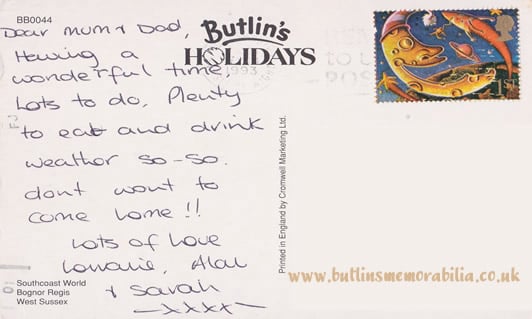 BB0044
Dear Mum & Dad,
Having a
wonderful time
Lots to do, Plenty
to eat and drink
weather so-so.
dont want to
come home!!
Lots of love
Lorraine, Alan
& Sarah
—xxxx—
Southcoast World
Bognor Regis
West Sussex
Butlin's
HOLIDAYS
1993
1st
Printed in England by Cromwell Marketing Ltd.
www.butlinsmemorabilia.co.uk